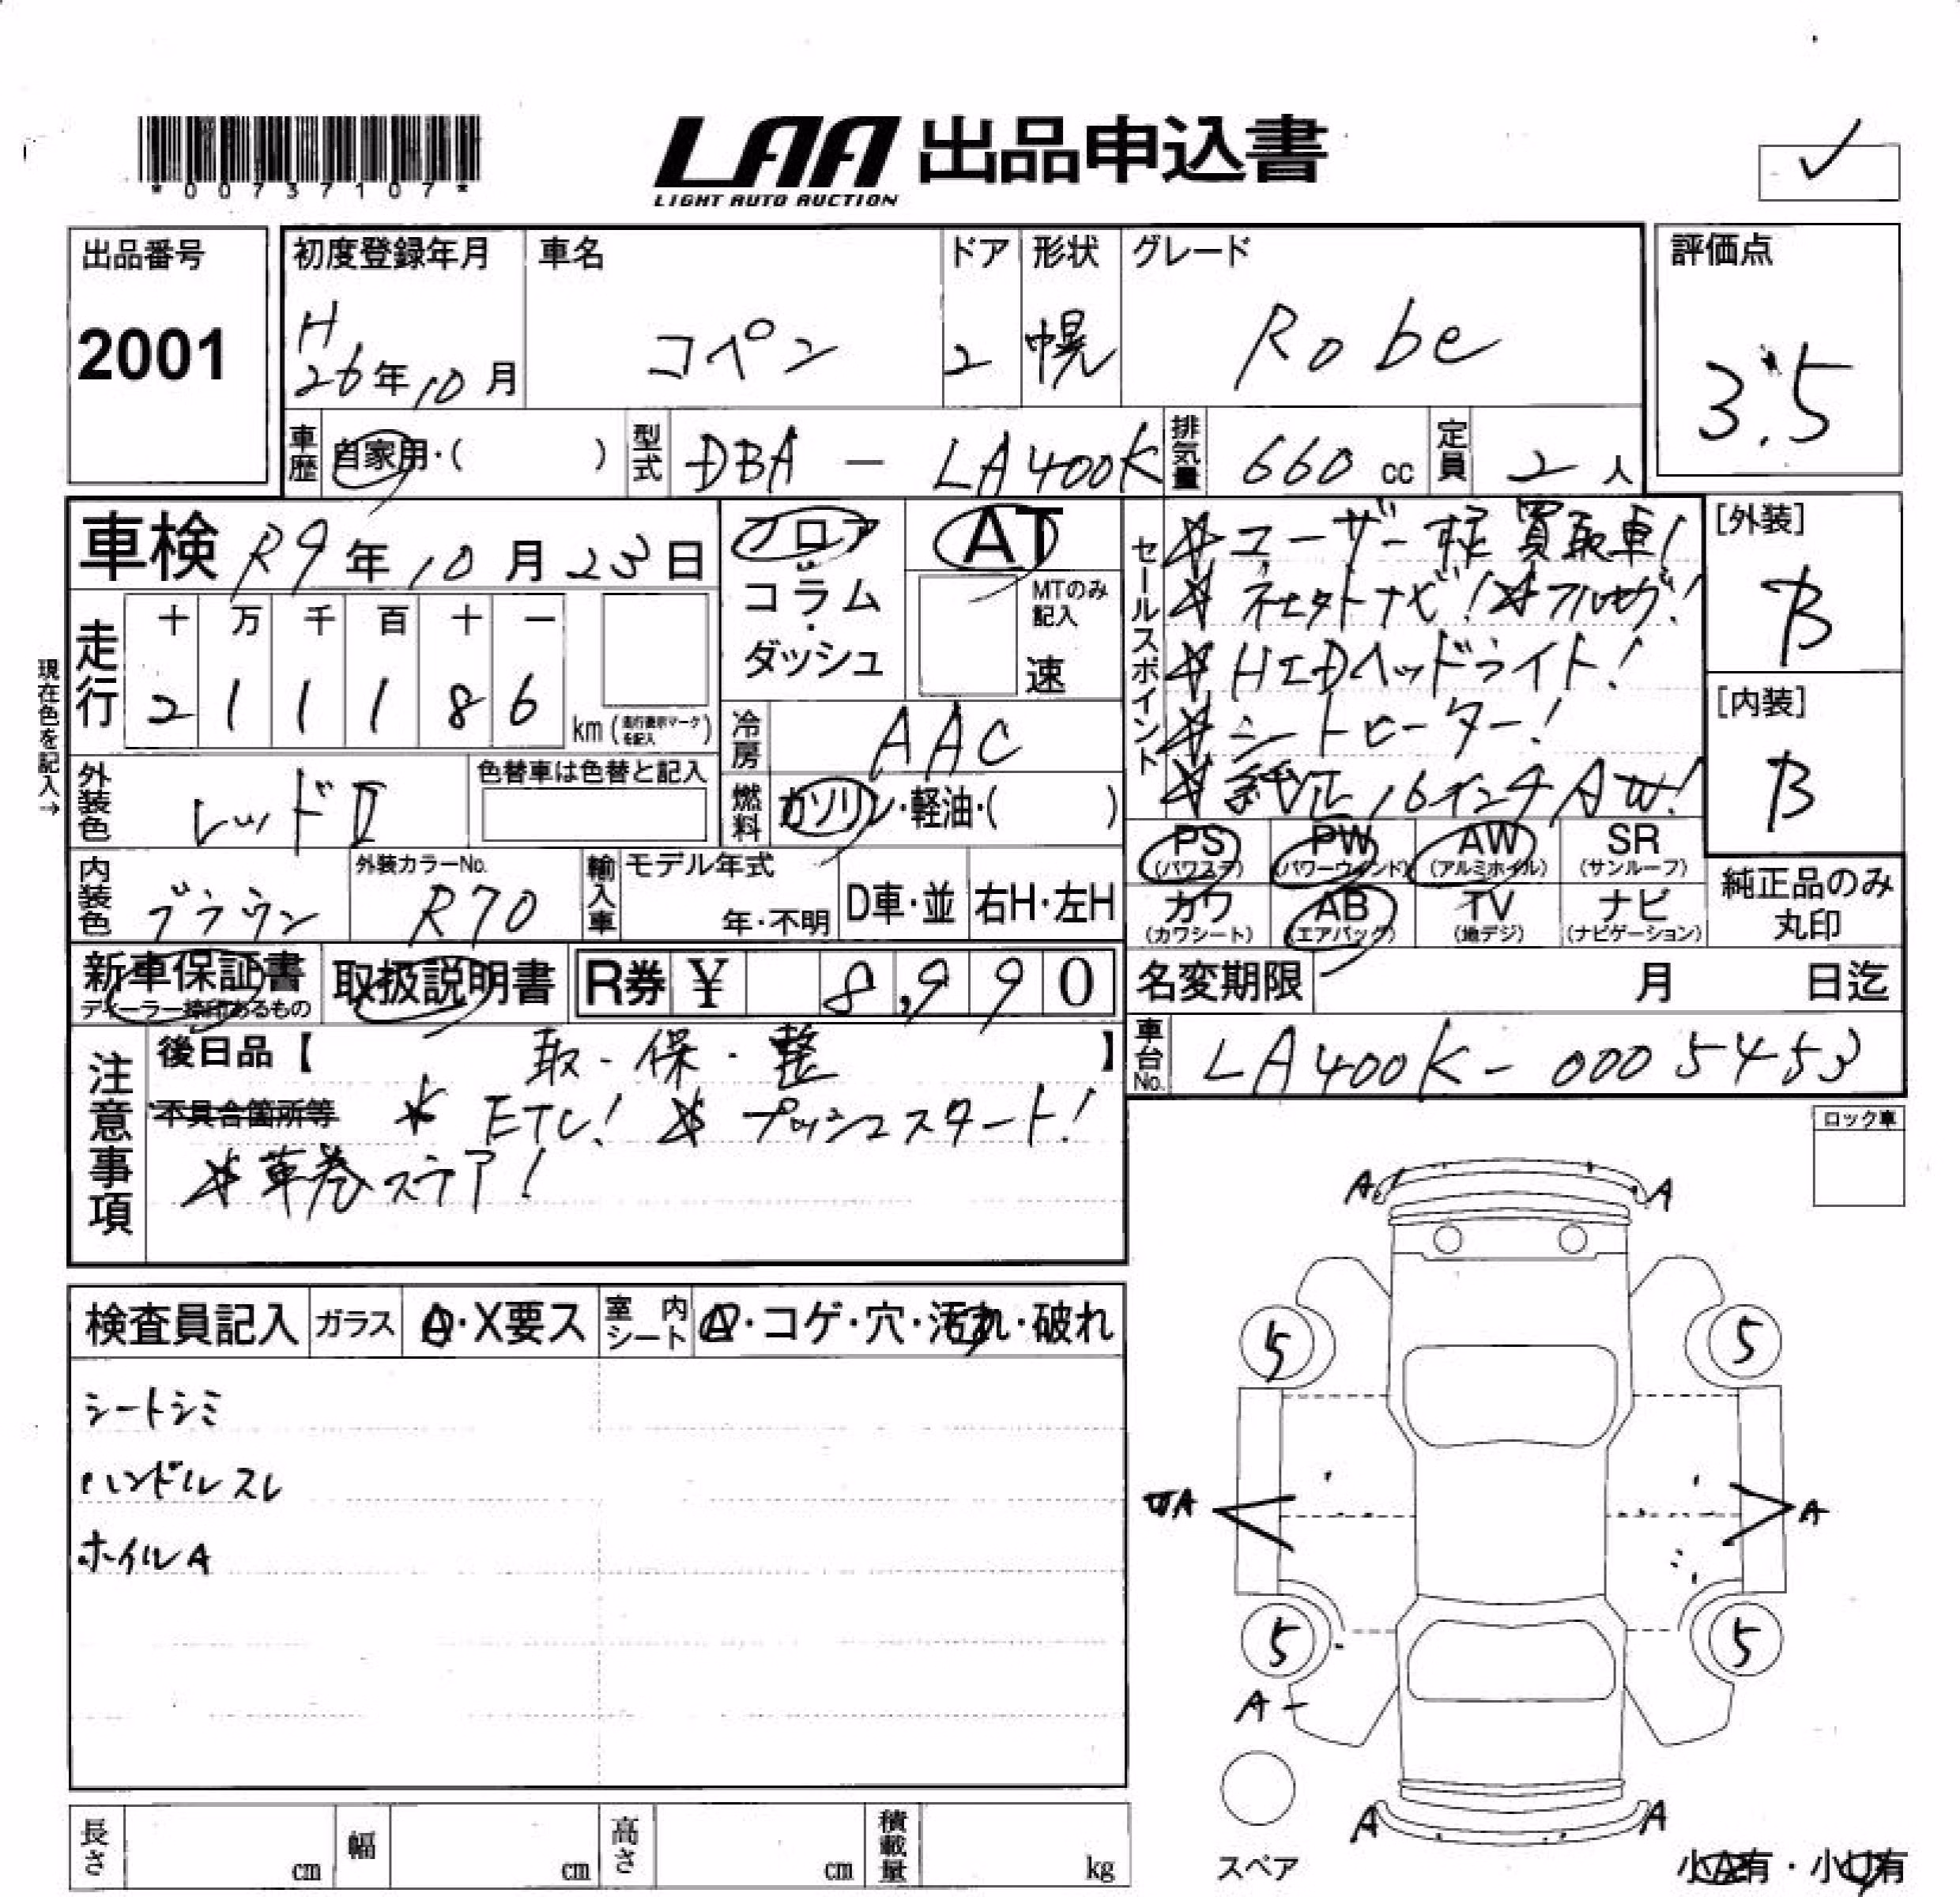 *00737107*
LAA 出品申込書
LIGHT AUTO AUCTION
出品番号
2001
初度登録年月
H
26年10月
車名
コペン
ドア
2
形状
幌
グレード
Robe
評価点
3.5
車歴
自家用・( )
型式
DBA - LA400K
排気量
660 cc
定員
2人
車検 R9年10月23日
フロア
コラム
・
ダッシュ
AT
MTのみ
記入
速
セールスポイント
☆ユーザー様買取車!
☆社外ナビ!☆フルセグ!
☆HIDヘッドライト!
☆シートヒーター!
☆純正16インチAW!
[外装]
B
[内装]
B
現在色を記入→
走行
十 万 千 百 十 一
2 1 1 1 8 6
km (走行表示マークを記入)
冷房
AAC
燃料
ガソリン・軽油・( )
外装色
レッドII
色替車は色替と記入
内装色
ブラウン
外装カラーNo.
R70
輸入車
モデル年式
年・不明
D車・並
右H・左H
PS
(パワステ)
PW
(パワーウインド)
AW
(アルミホイル)
SR
(サンルーフ)
カワ
(カワシート)
AB
(エアバック)
TV
(地デジ)
ナビ
(ナビゲーション)
純正品のみ
丸印
新車保証書
ディーラー捺印あるもの
取扱説明書
R券 ¥ 8,990
名変期限 月 日迄
車台No.
LA400K-0005453
注意事項
後日品【 取・保・整 】
不具合箇所等 ☆ETC! ☆プッシュスタート!
☆革巻ステア!
ロック車
検査員記入
ガラス
A・X要ス
室内シート
A・コゲ・穴・汚れ・破れ
シートシミ
ハンドルスレ
ホイルA
A A
5 5
A A
5 5
A
A A
スペア
小A有・小U有
長さ cm
幅 cm
高さ cm
積載量 kg